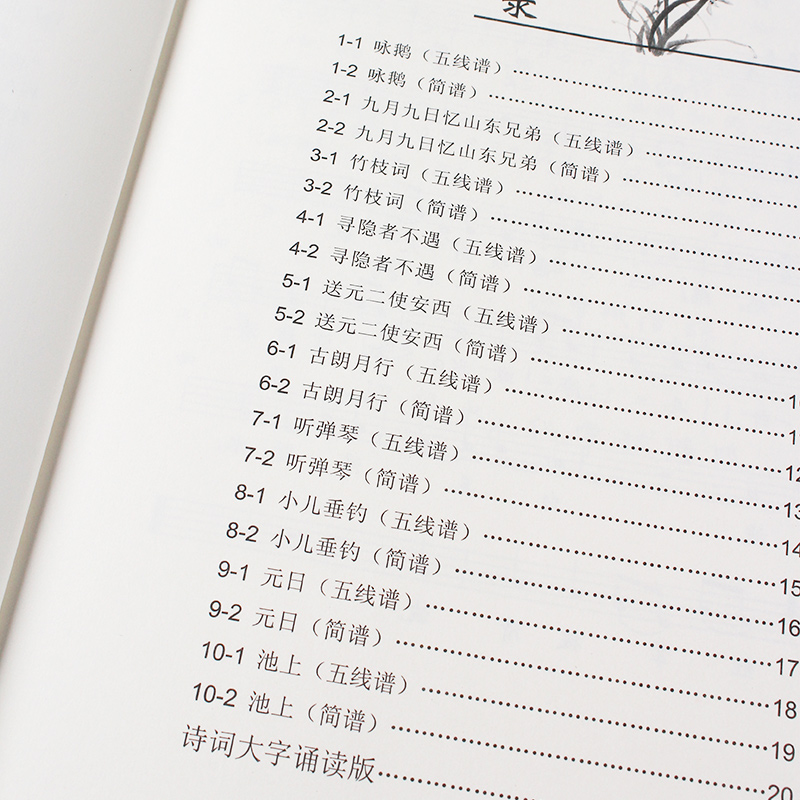 录
1-1 咏鹅（五线谱）
1-2 咏鹅（简谱）
2-1 九月九日忆山东兄弟（五线谱）
2-2 九月九日忆山东兄弟（简谱）
3-1 竹枝词（五线谱）
3-2 竹枝词（简谱）
4-1 寻隐者不遇（五线谱）
4-2 寻隐者不遇（简谱）
5-1 送元二使安西（五线谱）
5-2 送元二使安西（简谱）
6-1 古朗月行（五线谱）
6-2 古朗月行（简谱） 12
7-1 听弹琴（五线谱） 13
7-2 听弹琴（简谱） 14
8-1 小儿垂钓（五线谱） 15
8-2 小儿垂钓（简谱） 16
9-1 元日（五线谱） 17
9-2 元日（简谱） 18
10-1 池上（五线谱） 19
10-2 池上（简谱） 20
诗词大字诵读版